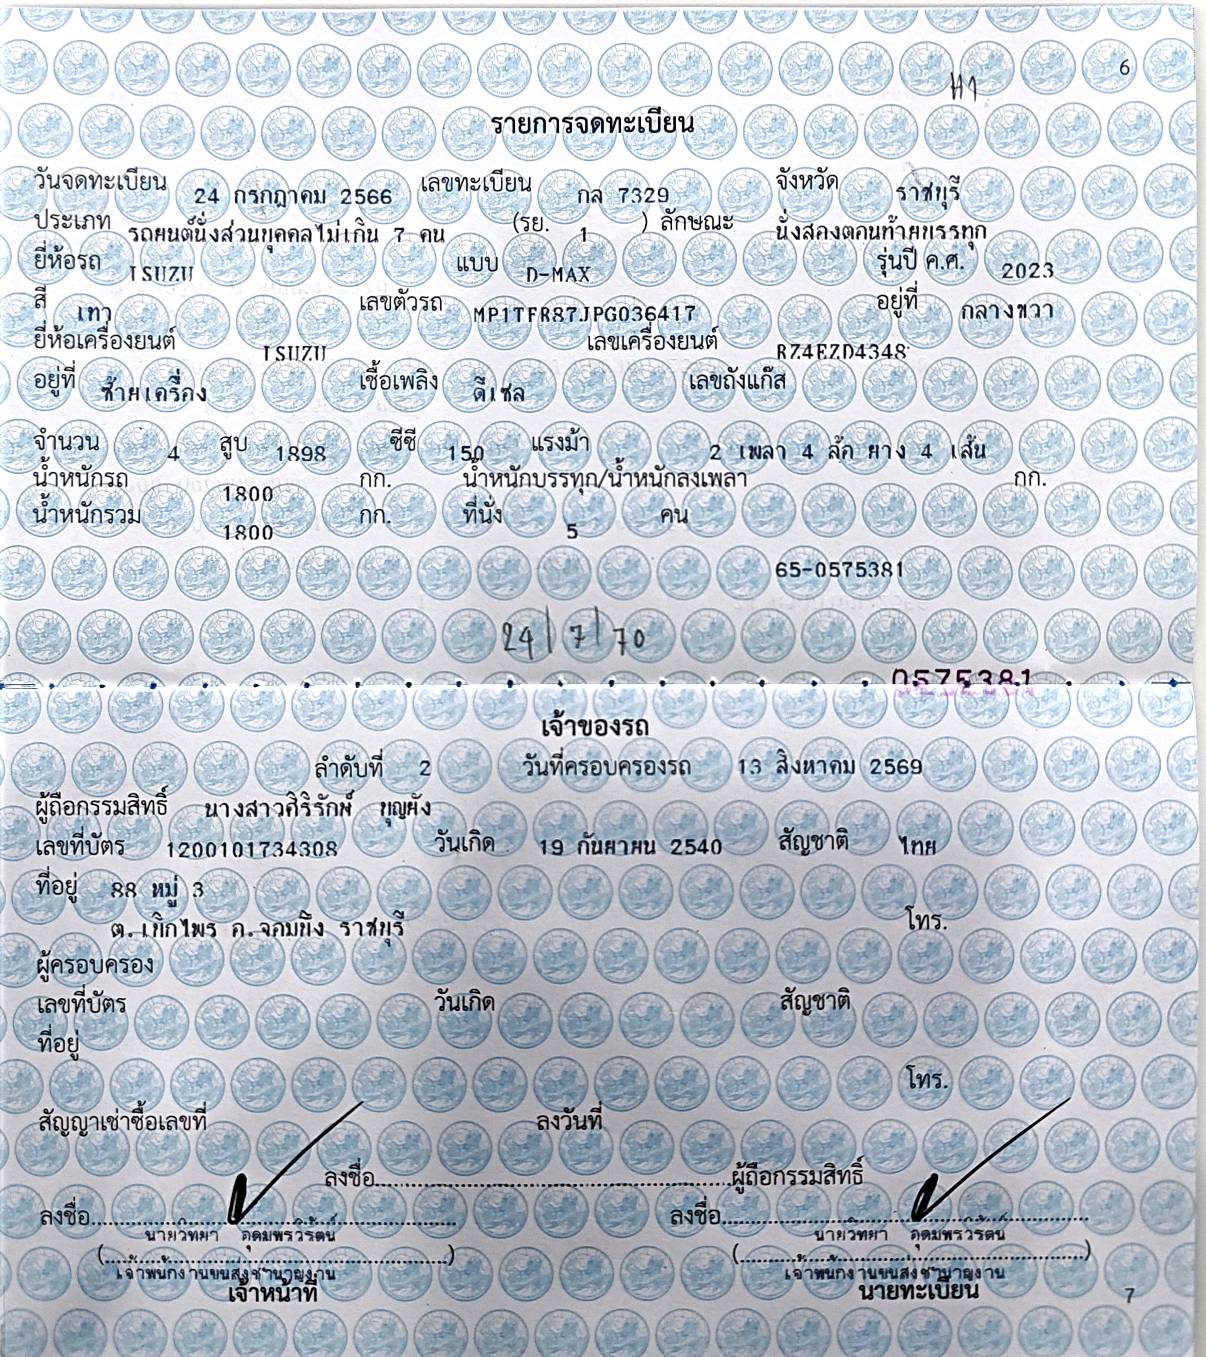 6
H1
รายการจดทะเบียน
วันจดทะเบียน 24 กรกฎาคม 2566 เลขทะเบียน กล 7329 จังหวัด ราชบุรี
ประเภท รถยนต์นั่งส่วนบุคคลไม่เกิน 7 คน (รย. 1 ) ลักษณะ นั่งสองตอนท้ายบรรทุก
ยี่ห้อรถ ISUZU แบบ D-MAX รุ่นปี ค.ศ. 2023
สี เทา เลขตัวรถ MP1TFR87JPG036417 อยู่ที่ กลางขวา
ยี่ห้อเครื่องยนต์ ISUZU เลขเครื่องยนต์ RZ4EZD4348
อยู่ที่ ซ้ายเครื่อง เชื้อเพลิง ดีเซล เลขถังแก๊ส
จำนวน 4 สูบ 1898 ซีซี 150 แรงม้า 2 เพลา 4 ล้อ ยาง 4 เส้น
น้ำหนักรถ 1800 กก. น้ำหนักบรรทุก/น้ำหนักลงเพลา กก.
น้ำหนักรวม 1800 กก. ที่นั่ง 5 คน
65-0575381
24/7/70
0575381
เจ้าของรถ
ลำดับที่ 2 วันที่ครอบครองรถ 13 สิงหาคม 2569
ผู้ถือกรรมสิทธิ์ นางสาวศิริรักษ์ บุญผัง
เลขที่บัตร 1200101734308 วันเกิด 19 กันยายน 2540 สัญชาติ ไทย
ที่อยู่ 88 หมู่ 3
ต.เบิกไพร อ.จอมบึง ราชบุรี โทร.
ผู้ครอบครอง
เลขที่บัตร วันเกิด สัญชาติ
ที่อยู่
โทร.
สัญญาเช่าซื้อเลขที่ ลงวันที่
ลงชื่อ ผู้ถือกรรมสิทธิ์
ลงชื่อ ลงชื่อ
นายวิทยา อุดมพรวิรัตน์ นายวิทยา อุดมพรวิรัตน์
( ) ( )
เจ้าพนักงานขนส่งชำนาญงาน เจ้าพนักงานขนส่งชำนาญงาน
เจ้าหน้าที่ นายทะเบียน
7